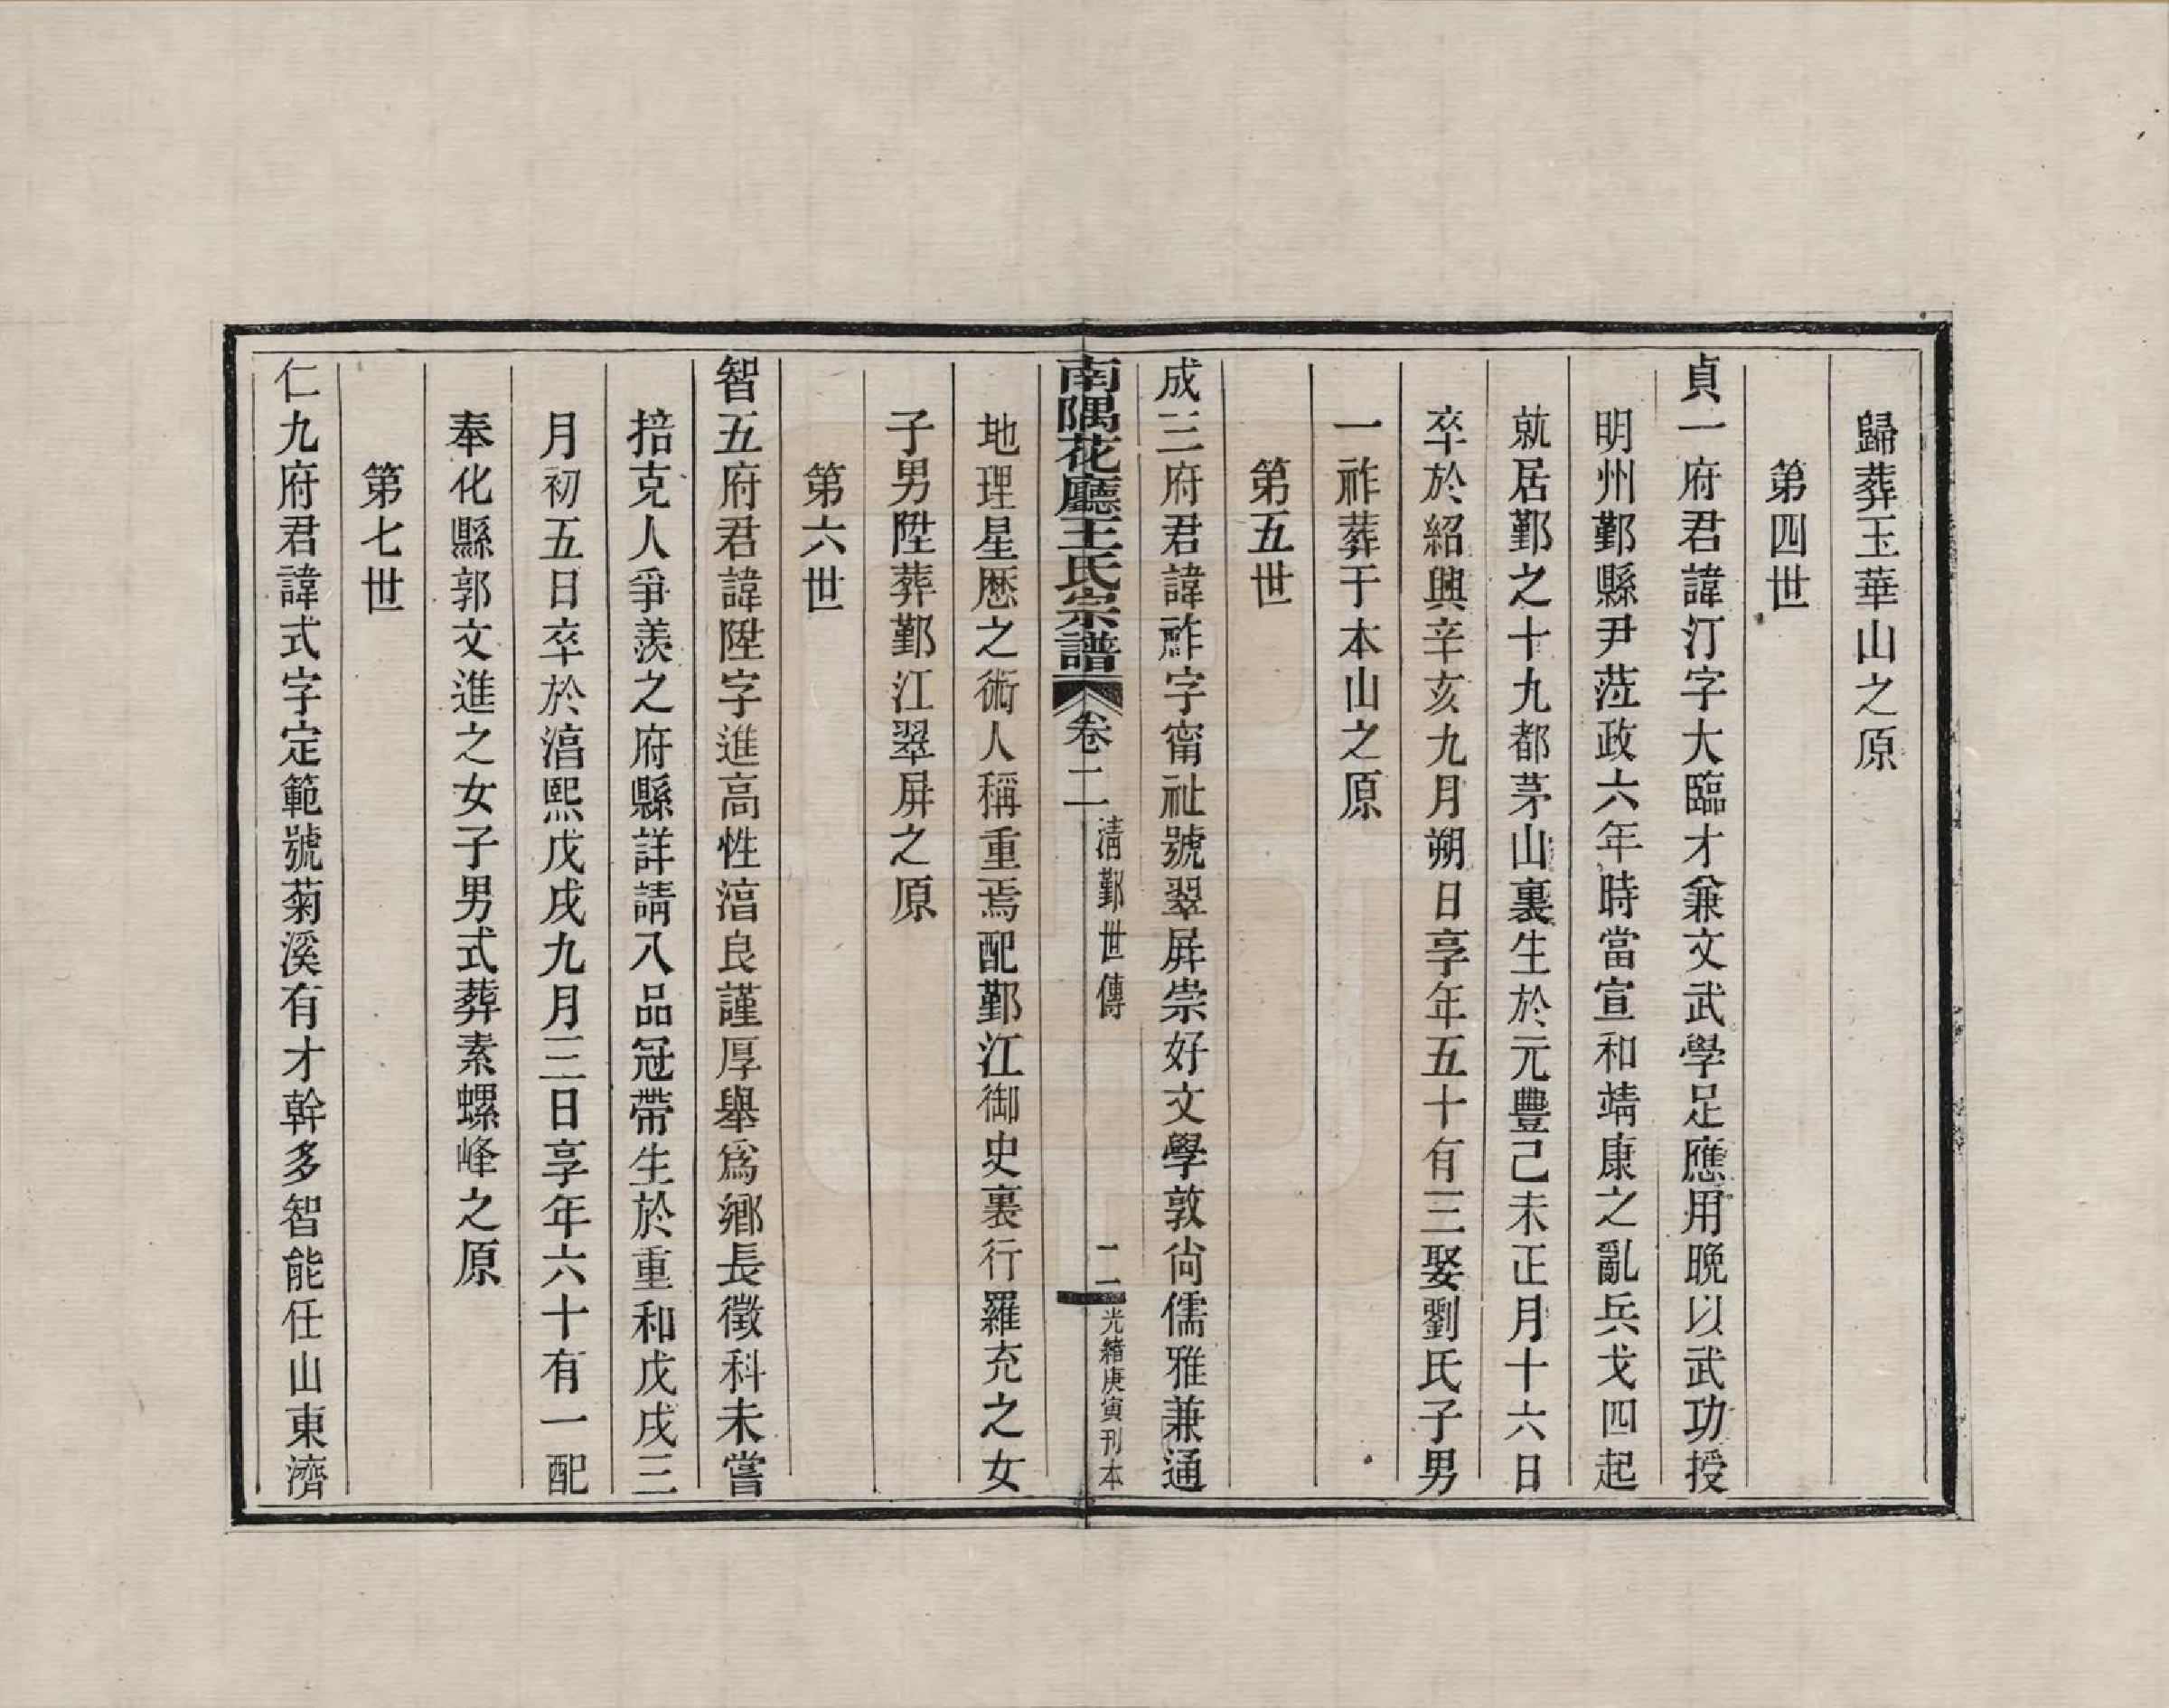 歸葬玉華山之原
第四世
貞一府君諱汀字大臨才兼文武學足應用晚以武功授
明州鄞縣尹蒞政六年時當宣和靖康之亂兵戈四起
就居鄞之十九都茅山裏生於元豐己未正月十六日
卒於紹興辛亥九月朔日享年五十有三娶劉氏子男
一祚葬于本山之原
第五世
成三府君諱祚字甯祉號翠屛崇好文學敦尙儒雅兼通
南隅花廳王氏宗譜 卷二 淸鄞世傳 二 光緒庚寅刊本
地理星厯之術人稱重焉配鄞江御史裏行羅充之女
子男陞葬鄞江翠屛之原
第六世
智五府君諱陞字進高性湻良謹厚舉爲鄉長徵科未嘗
掊克人爭羨之府縣詳請入品冠帶生於重和戊戌三
月初五日卒於湻熙戊戌九月三日享年六十有一配
奉化縣郭文進之女子男式葬素螺峰之原
第七世
仁九府君諱式字定範號菊溪有才幹多智能任山東濟